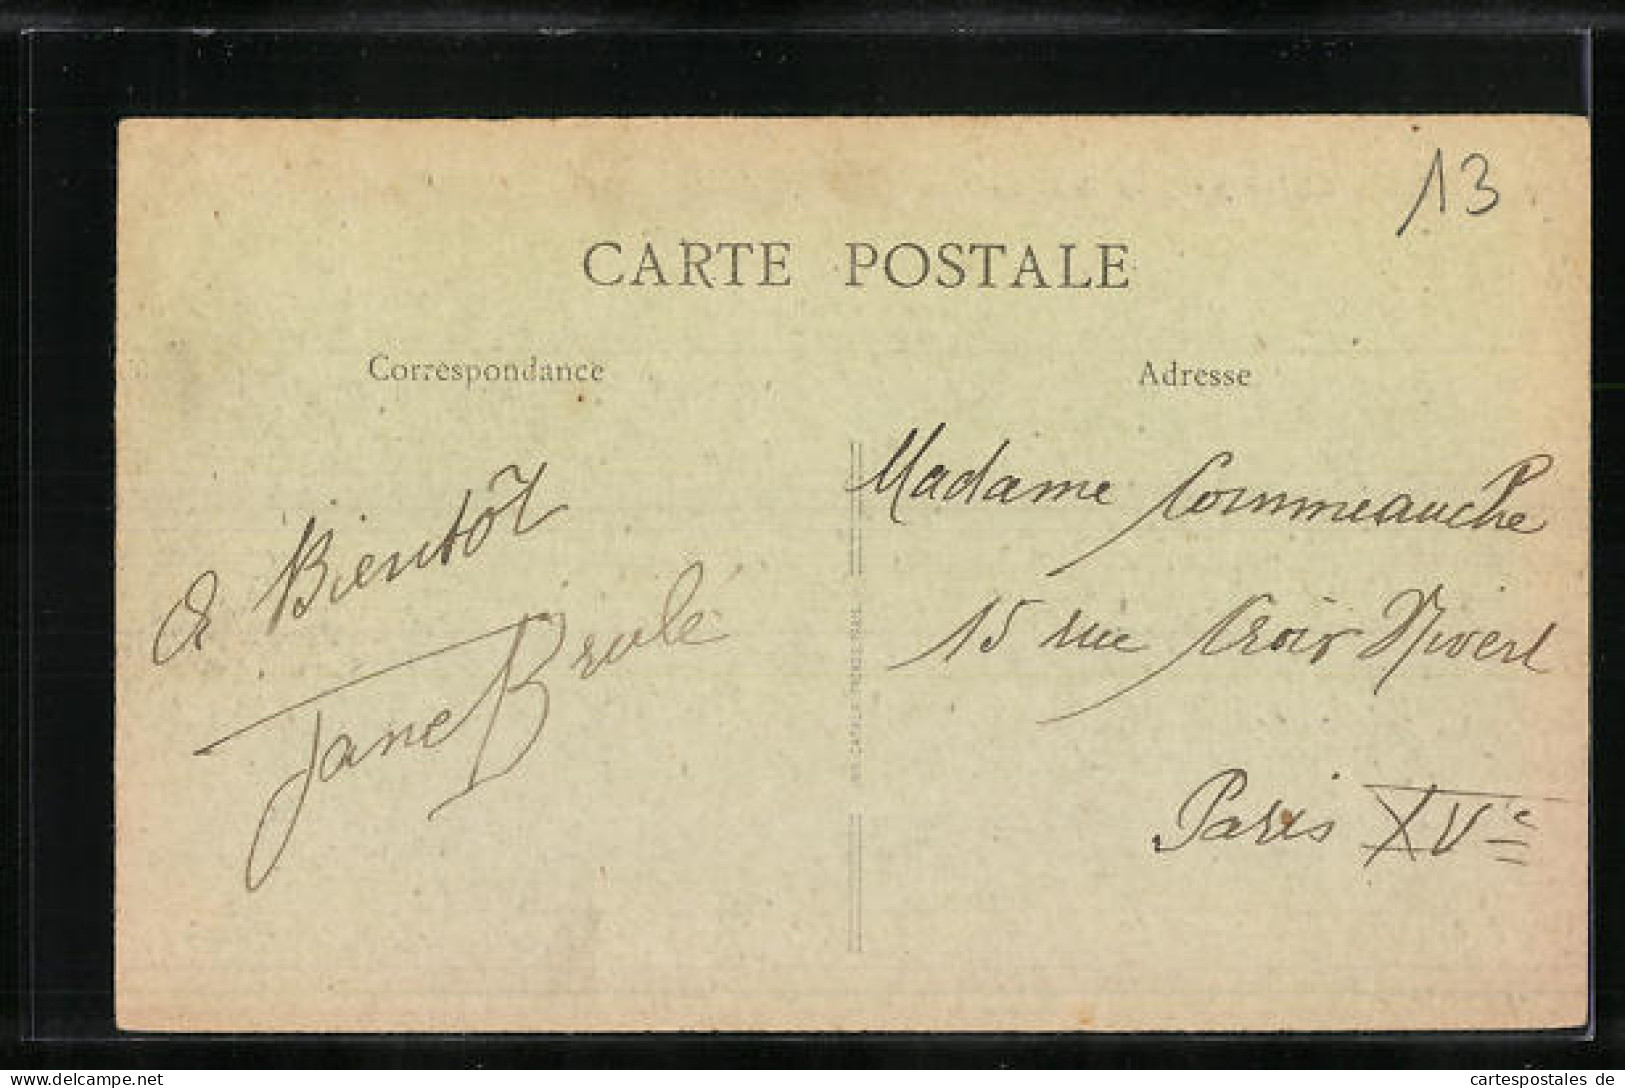 13
CARTE POSTALE
Correspondance
Adresse
A Bientôt
Jane Brulé
Madame Commeauche
15 rue Croix Nivert
Paris XVe
delcampe.net
cartespostales de